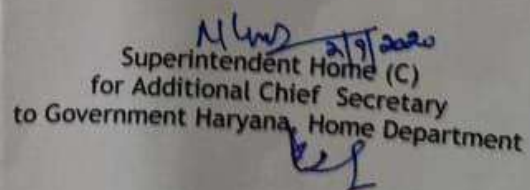 2/9/2020
Superintendent Home (C)
for Additional Chief Secretary
to Government Haryana, Home Department